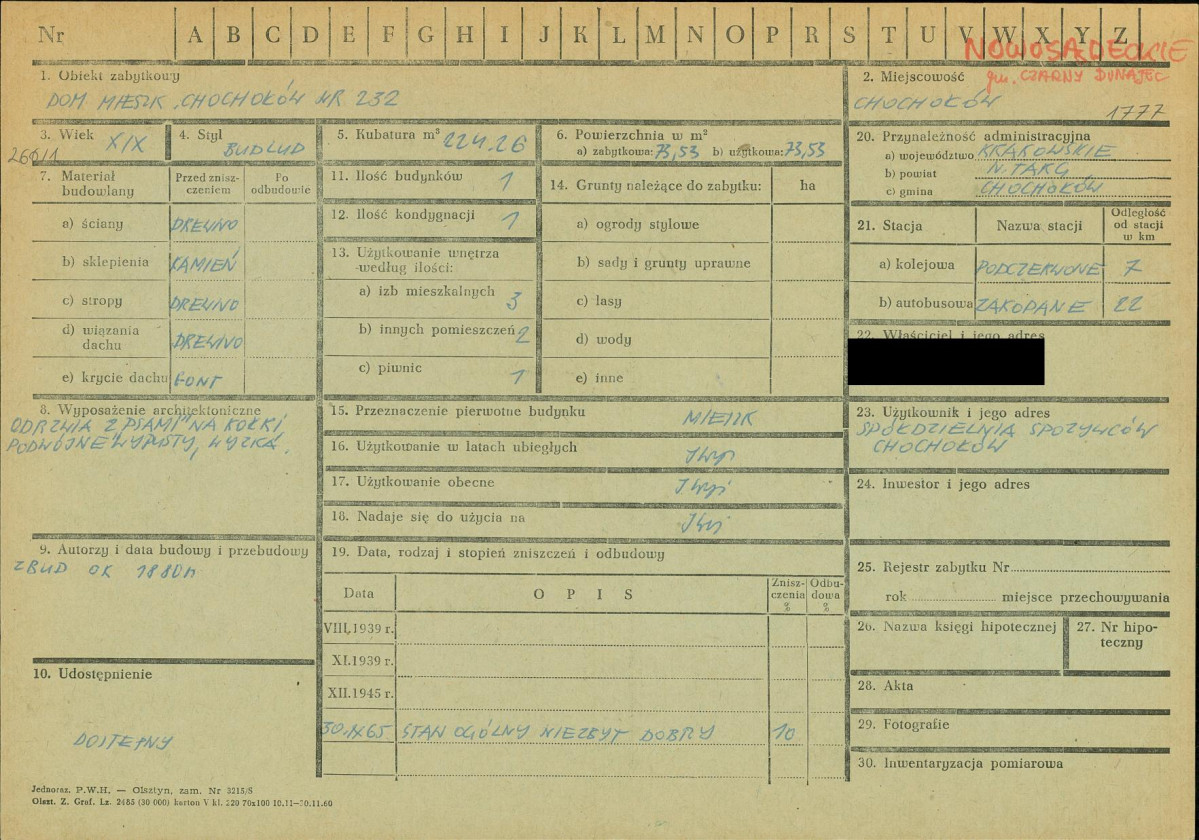 Nr A B C D E F G H I J K L M N O P R S T U V W X Y Z
NOWOSĄDECKIE
gm. CZARNY DUNAJEC
1. Obiekt zabytkowy
DOM. MIESZK. CHOCHOŁÓW NR 232
2. Miejscowość
CHOCHOŁÓW
1777
3. Wiek XIX
4. Styl BUD LUD
5. Kubatura m³ 224.26
6. Powierzchnia w m²
a) zabytkowa: 73,53 b) użytkowa: 73,53
7. Materiał budowlany
Przed znisz-
czeniem
Po
odbudowie
a) ściany DREWNO
b) sklepienia KAMIEŃ
c) stropy DREWNO
d) wiązania
dachu DREWNO
e) krycie dachu GONT
8. Wyposażenie architektoniczne
ODRZWIA Z "PSAMI" NA KOŁKI
PODWÓJNE WYPUSTY, WYŻKA.
9. Autorzy i data budowy i przebudowy
ZBUD OK 1880 R
10. Udostępnienie
DOSTĘPNY
11. Ilość budynków 1
12. Ilość kondygnacji 1
13. Użytkowanie wnętrza
według ilości:
a) izb mieszkalnych 3
b) innych pomieszczeń 2
c) piwnic 1
14. Grunty należące do zabytku: ha
a) ogrody stylowe
b) sady i grunty uprawne
c) lasy
d) wody
e) inne
15. Przeznaczenie pierwotne budynku MIESZK
16. Użytkowanie w latach ubiegłych
17. Użytkowanie obecne
18. Nadaje się do użycia na
19. Data, rodzaj i stopień zniszczeń i odbudowy
Data
O P I S
Znisz-
czenia
%
Odbu-
dowa
%
VIII.1939 r.
XI.1939 r.
XII.1945 r.
30.IX.65 STAN OGÓLNY NIEZBYT DOBRY 10
20. Przynależność administracyjna
a) województwo KRAKOWSKIE
b) powiat N. TARG
c) gmina CHOCHOŁÓW
21. Stacja
Nazwa stacji
Odległość
od stacji
w km
a) kolejowa PODCZERWONE 7
b) autobusowa ZAKOPANE 22
22. Właściciel i jego adres
23. Użytkownik i jego adres
SPÓŁDZIELNIA SPOŻYWCÓW
CHOCHOŁÓW
24. Inwestor i jego adres
25. Rejestr zabytku Nr
rok miejsce przechowywania
26. Nazwa księgi hipotecznej
27. Nr hipo-
teczny
28. Akta
29. Fotografie
30. Inwentaryzacja pomiarowa
Jednoraz. P.W.H. — Olsztyn, zam. Nr 3215/S
Olszt. Z. Graf. Lz. 2485 (30 000) karton V kl. 220 70x100 10.11—30.11.60